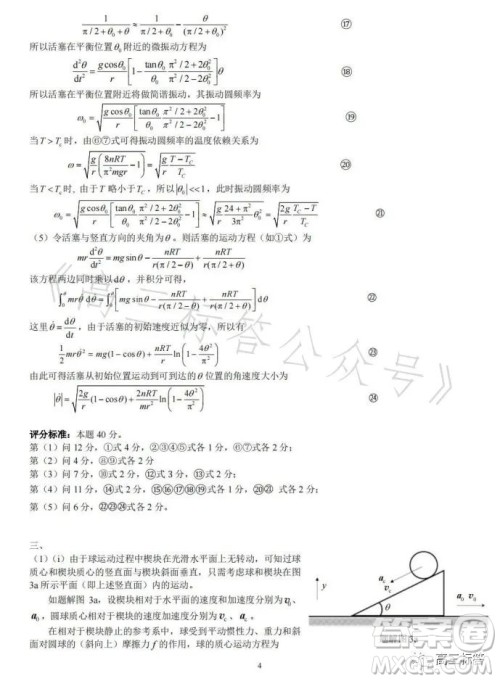 1/(π/2+θ₀+θ) ≈ 1/(π/2+θ₀) − θ/(π/2+θ₀)² ⑰
所以活塞在平衡位置θ₀附近的微振动方程为
d²θ/dt² = (g cosθ₀/r)[1 − (tanθ₀/θ₀)(π²/2+2θ₀²)/(π²/2−2θ₀²)]θ ⑱
所以活塞在平衡附近将做简谐振动，其振动圆频率为
ω₀ = √((g cosθ₀/r)[(tanθ₀/θ₀)(π²/2+2θ₀²)/(π²/2−2θ₀²) − 1]) ⑲
当 T > T_C 时，由⑥⑦式可得振动圆频率的温度依赖关系为
ω = √((g/r)(8nRT/(π²mgr) − 1)) = √((g/r)(T−T_C)/T_C) ⑳
当 T < T_C 时，由于 T 略小于 T_C，所以|θ₀| << 1，此时振动圆频率为
ω₀ = √((g cosθ₀/r)[(tanθ₀/θ₀)(π²/2+2θ₀²)/(π²/2−2θ₀²) − 1]) ≈ √((g/r)(24+π²)/(3π²)θ₀²) ≈ √((2g/r)(T_C−T)/T_C) ㉑
（5）令活塞与竖直方向的夹角为θ。则活塞的运动方程（如①式）为
mr d²θ/dt² = mg sinθ − nRT/(r(π/2−θ)) + nRT/(r(π/2+θ))
该方程两边同时乘以dθ，并积分可得，
∫₀^θ mrθ̇ dθ̇ = ∫₀^θ [mg sinθ − nRT/(r(π/2−θ)) + nRT/(r(π/2+θ))]dθ ㉒
这里θ̇ = dθ/dt，由于活塞的初始速度近似为零，所以有
(1/2)mrθ̇² = mg(1−cosθ) + (nRT/r)ln(1 − 4θ²/π²) ㉓
由此可得活塞从初始位置运动到可到达的θ位置的角速度大小为
|θ̇| = √((2g/r)(1−cosθ) + (2nRT/mr²)ln(1 − 4θ²/π²)) ㉔
评分标准：本题 40 分。
第（1）问 12 分，①式 4 分，②③④⑤式各 2 分；
第（2）问 4 分，⑧⑨式各 2 分
第（3）问 7 分，⑩式 2 分，⑫式 3 分，⑬式 2 分；
第（4）问 11 分，
第（5）问 6 分，㉒㉓㉔式各 2 分；
三、
（1）（i）由于球运动过程中楔块在光滑水平面上无转动，可知过球
质心和楔块质心的竖直面与楔块斜面垂直，只需考虑球和楔块在图
3a 所示平面（即上述竖直面）内的运动。
如题解图 3a，设楔块相对于水平面的速度和加速度分别为v₀、
a₀，圆球质心相对于楔块的速度和加速度分别为v_c、a_c。
在相对于楔块静止的参考系中，球受到平动惯性力、重力和斜
面对圆球的（斜向上）摩擦力 f 的作用，球的质心运动方程为
y
a_c
v_c
a₀ v₀
θ
题解图 3a
4
《高三标答公众号》
答案圈
高三标答